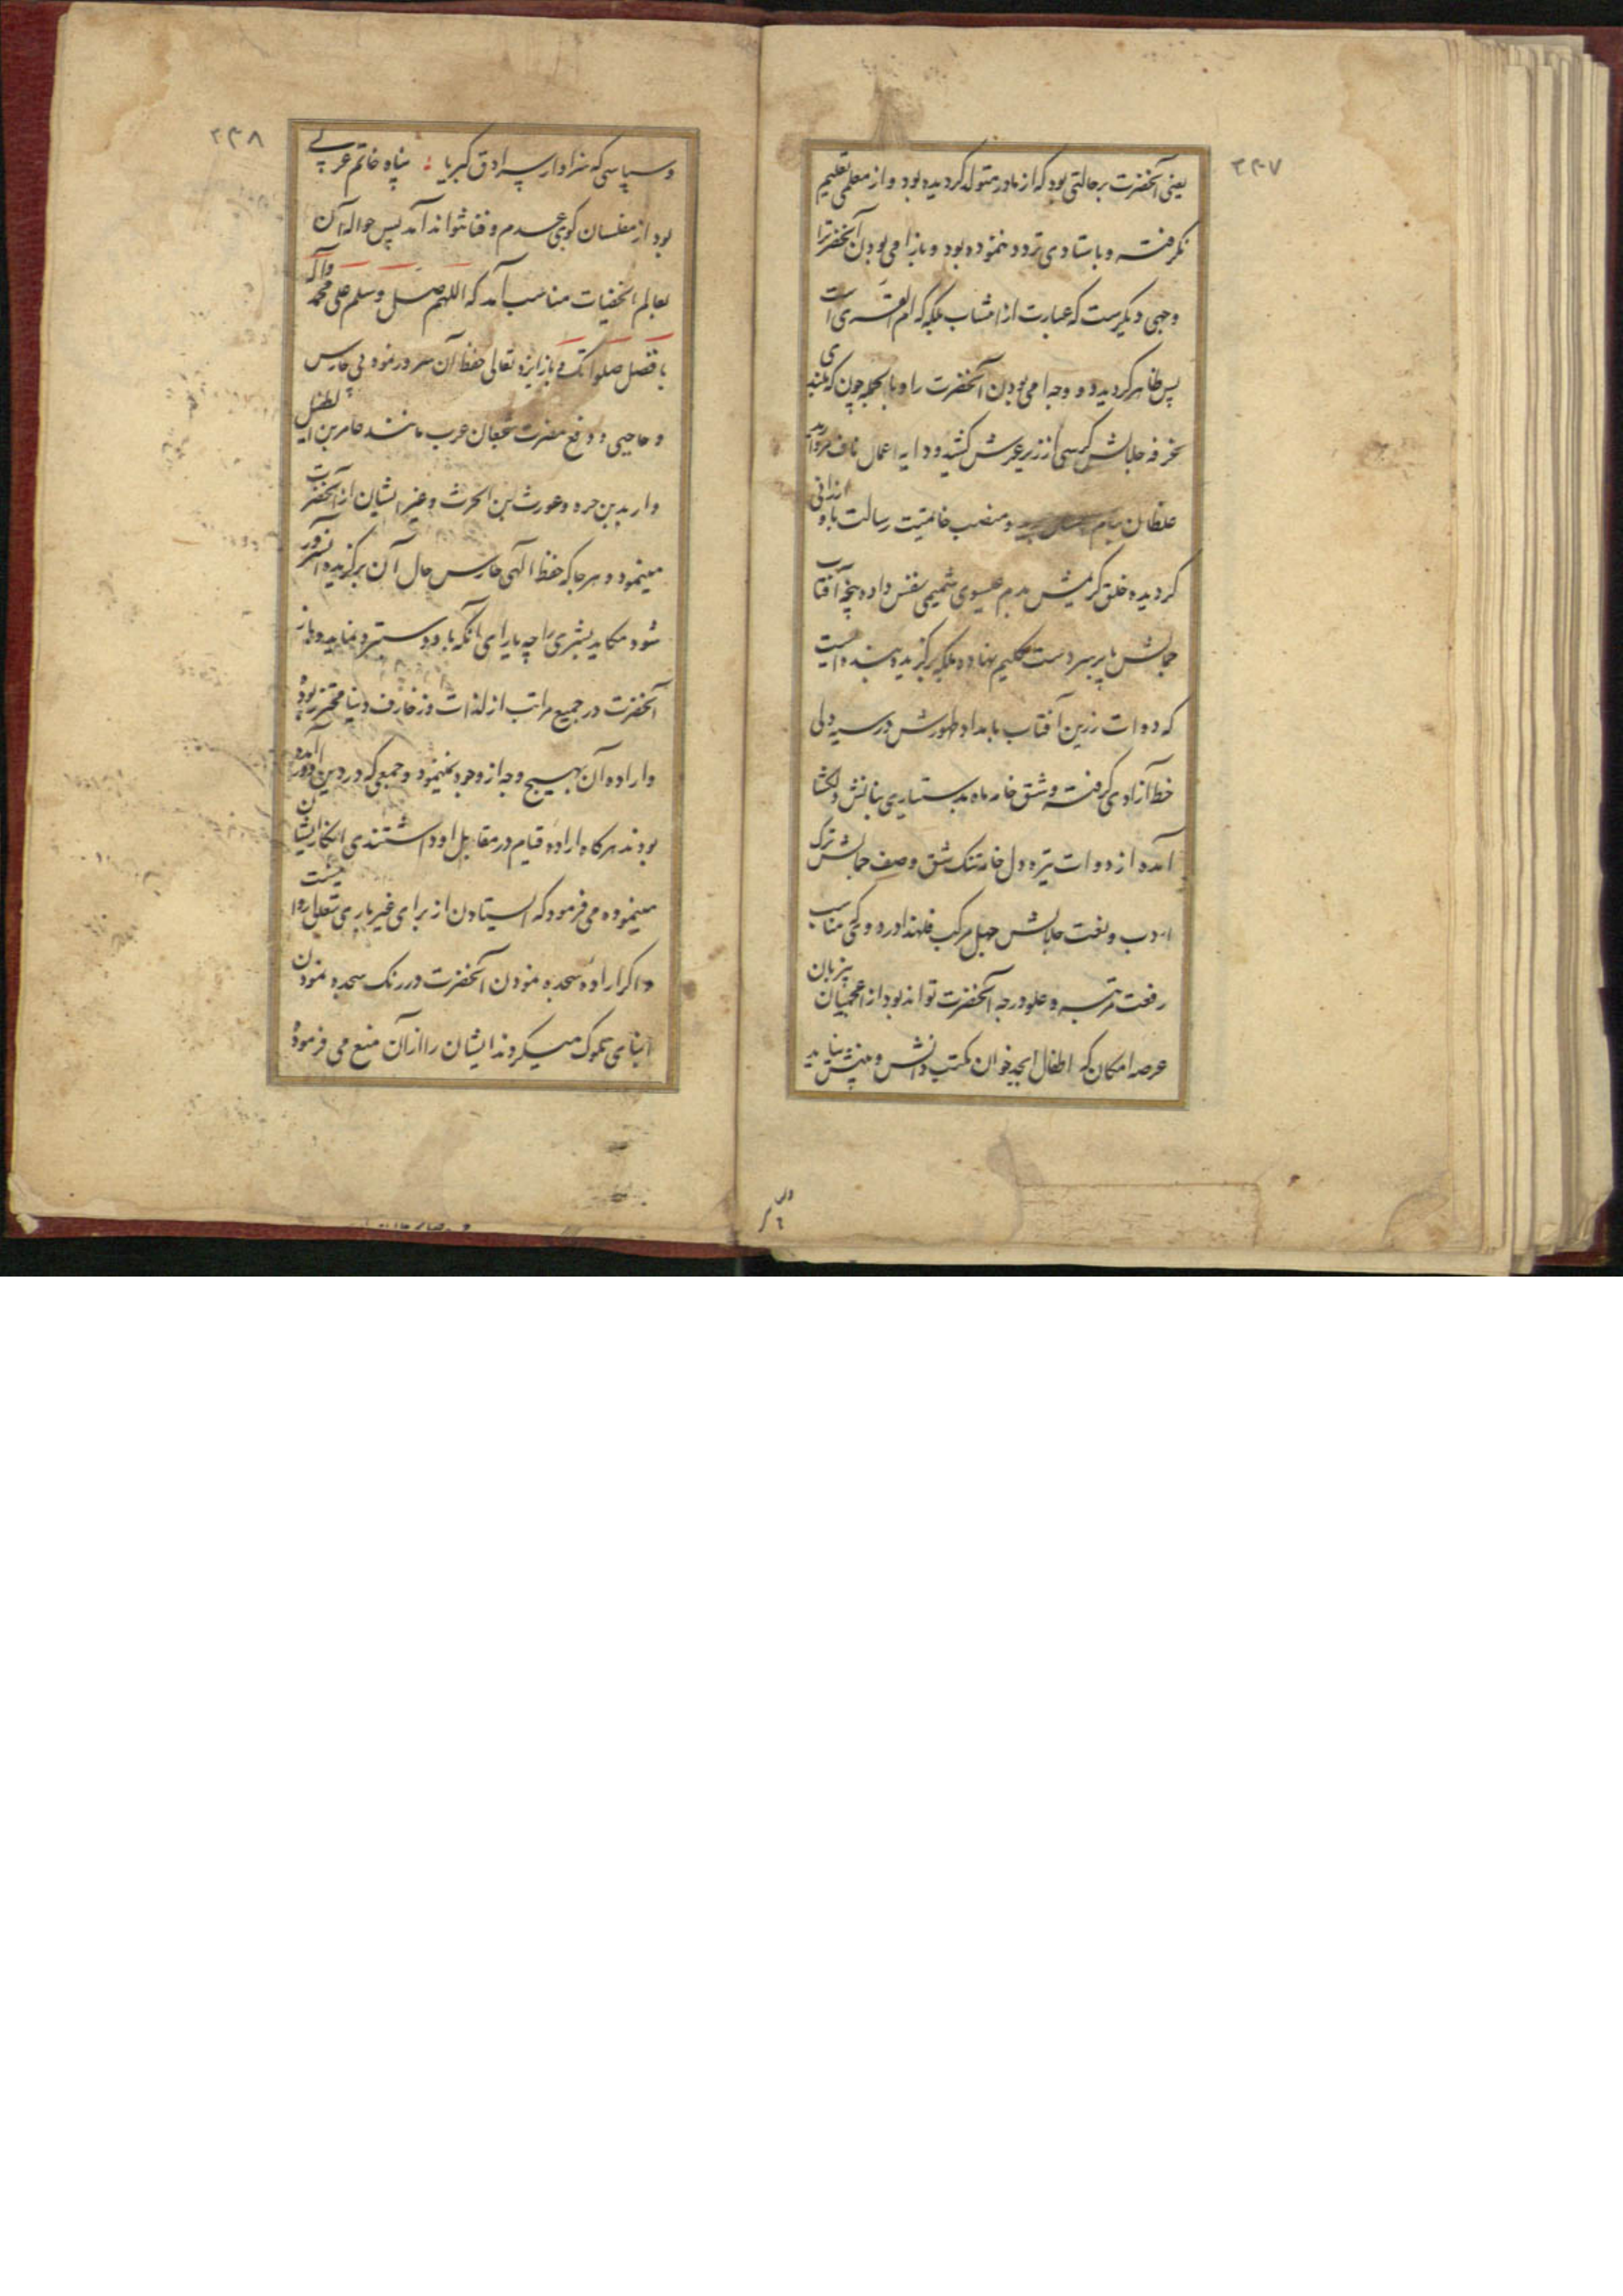 ۲۴۷
یعنی آنحضرت بر حالتی بود که از مادر متولد کردیده بود و از معلمی تعلیم
نکرفته و باستادی تردد ننموده بود و باز امی بودن آنحضرترا
وجهی دیکرست که عبارت از انتساب بمکه که ام القری است
پس ظاهر کردید دو وجه امی بودن آنحضرت را و بالجمله چون که بلندی
غرفه جلالش کرسی از زیر عرش کشید و دایه اعمال ناف مروارید
غلطان بنام و منصب خاتمیت رسالت باو ارزانی
کردیده خلق کریمش بدم عیسوی شمیمی نفس داده پنجه آفتاب
جمالش پا بر سر دست کلیم نهاده بلکه برکزیده بنده ایست
که دوات زرین آفتاب بامداد طورش در سیه دلی
خط آزادی کرفته و شق خامه ماه بدستیاری بنانش دلکشا
آمده از دوات تیره دل خامه تنک شق وصف جمالش ترک
ادب و نعت جلالش جهل مرکب فلهذا درودی که مناسب
رفعت رتبه و علو درجه آنحضرت تواند بود از اعجمیان بیزبان
عرصه امکان که اطفال ابجد خوان مکتب دانش و بینش نیاید
۲۴۸
و سپاسی که سزاوار سرادق کبریا پناه خاتم عربی
بود از مفلسان کوی عدم و فنا نتواند آمد پس حواله آن
بعالم الخفیات مناسب آمد که اللهم صل وسلم علی محمد وآله
بافضل صلواتک و باز ایزد تعالی حفظ آن سرور نمود بی حارس
و حاجبی و دفع مضرت شجعان عرب مانند عامر بن الطفیل
و اربد بن و بن الحرث و غیر ایشان از آنحضرت
مینمود و هر جا که حفظ الهی حارس حال آن برکزیده آفرینش
شود مکاید بشری را چه یارای آنکه باو دستبرد نماید و باز
آنحضرت در جمیع مراتب از لذات و زخارف دنیا محترز بود
و اراده آن بهیچ وجه از وجوه نمینمود و جمعی که در دین او در آمده
بودند هرکاه اراده قیام در مقابل او داشتندی انکار ایشان
مینموده می فرمود که ایستادن از برای غیر باری تعالی روا نیست
و اکر اراده سجده نمودن آنحضرت در رنک سجده نمودن
ابنای ملوک میکردند ایشان را از آن منع می فرمود